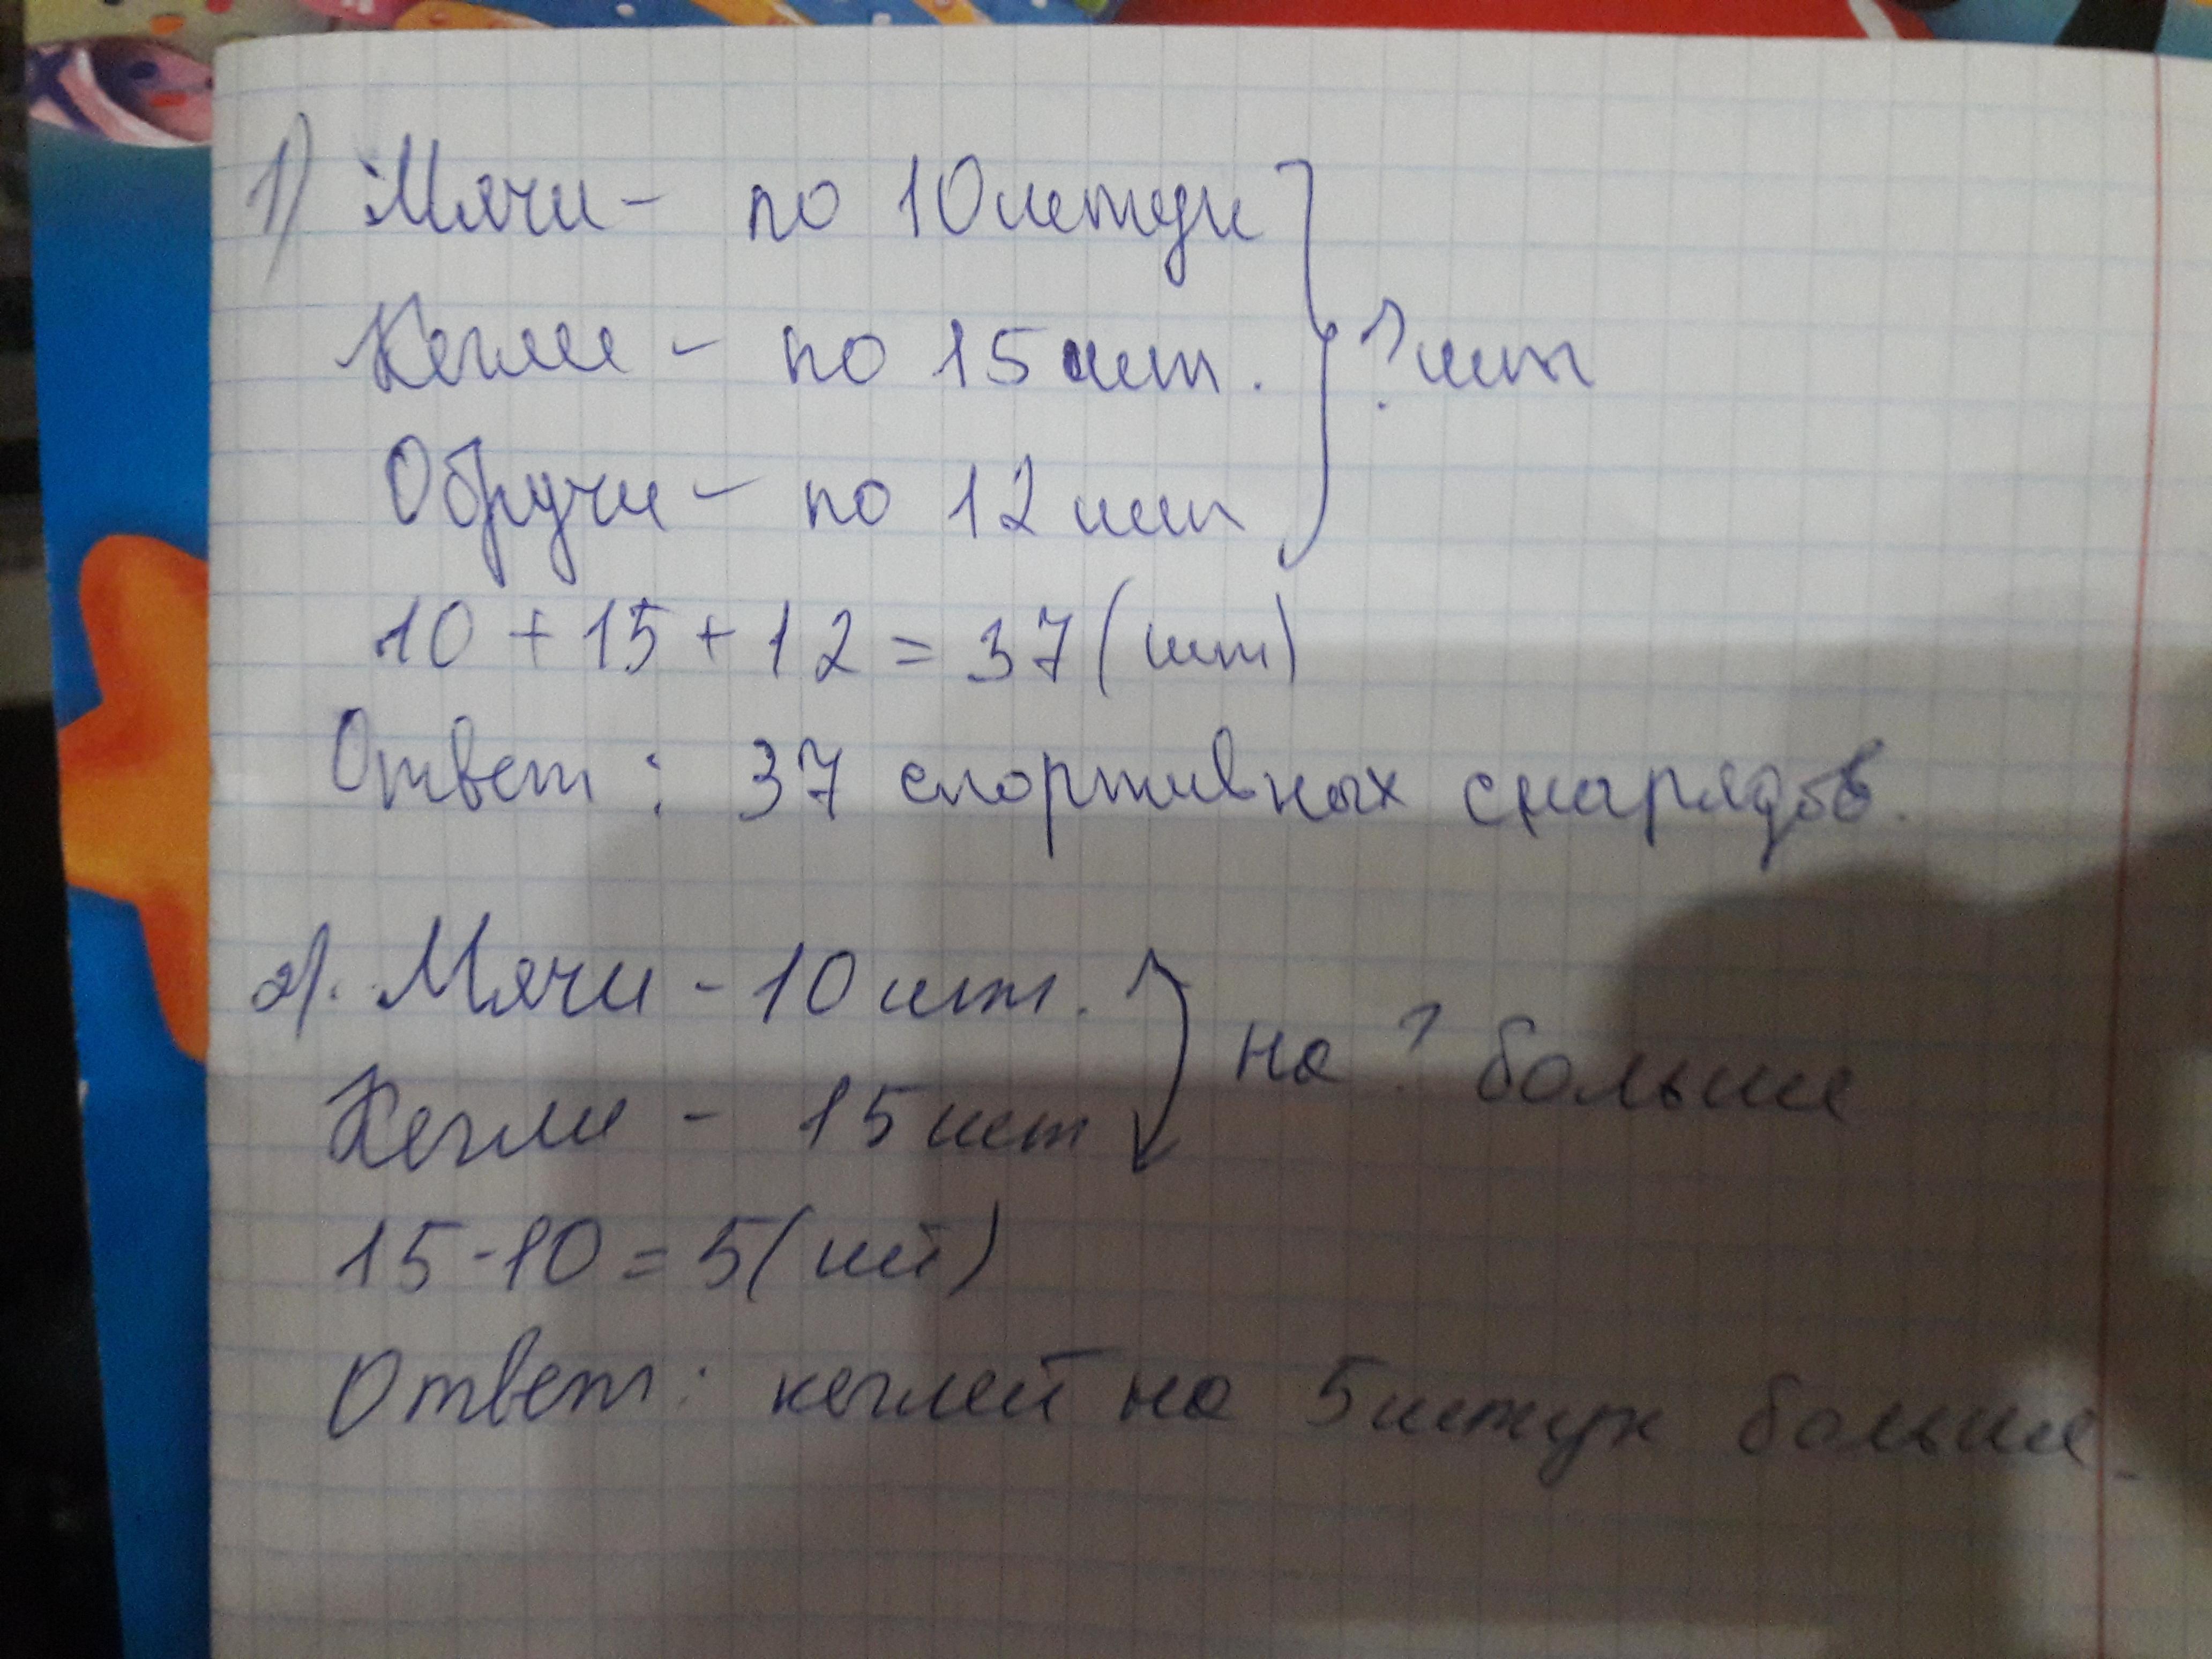 1) Мячи - по 10 штук
Кегли - по 15 шт. } ? шт
Обручи - по 12 шт
10 + 15 + 12 = 37 (шт)
Ответ: 37 спортивных снарядов.
2). Мячи - 10 шт.
на ? больше
Кегли - 15 шт
15 - 10 = 5 (шт)
Ответ: кеглей на 5 штук больше.